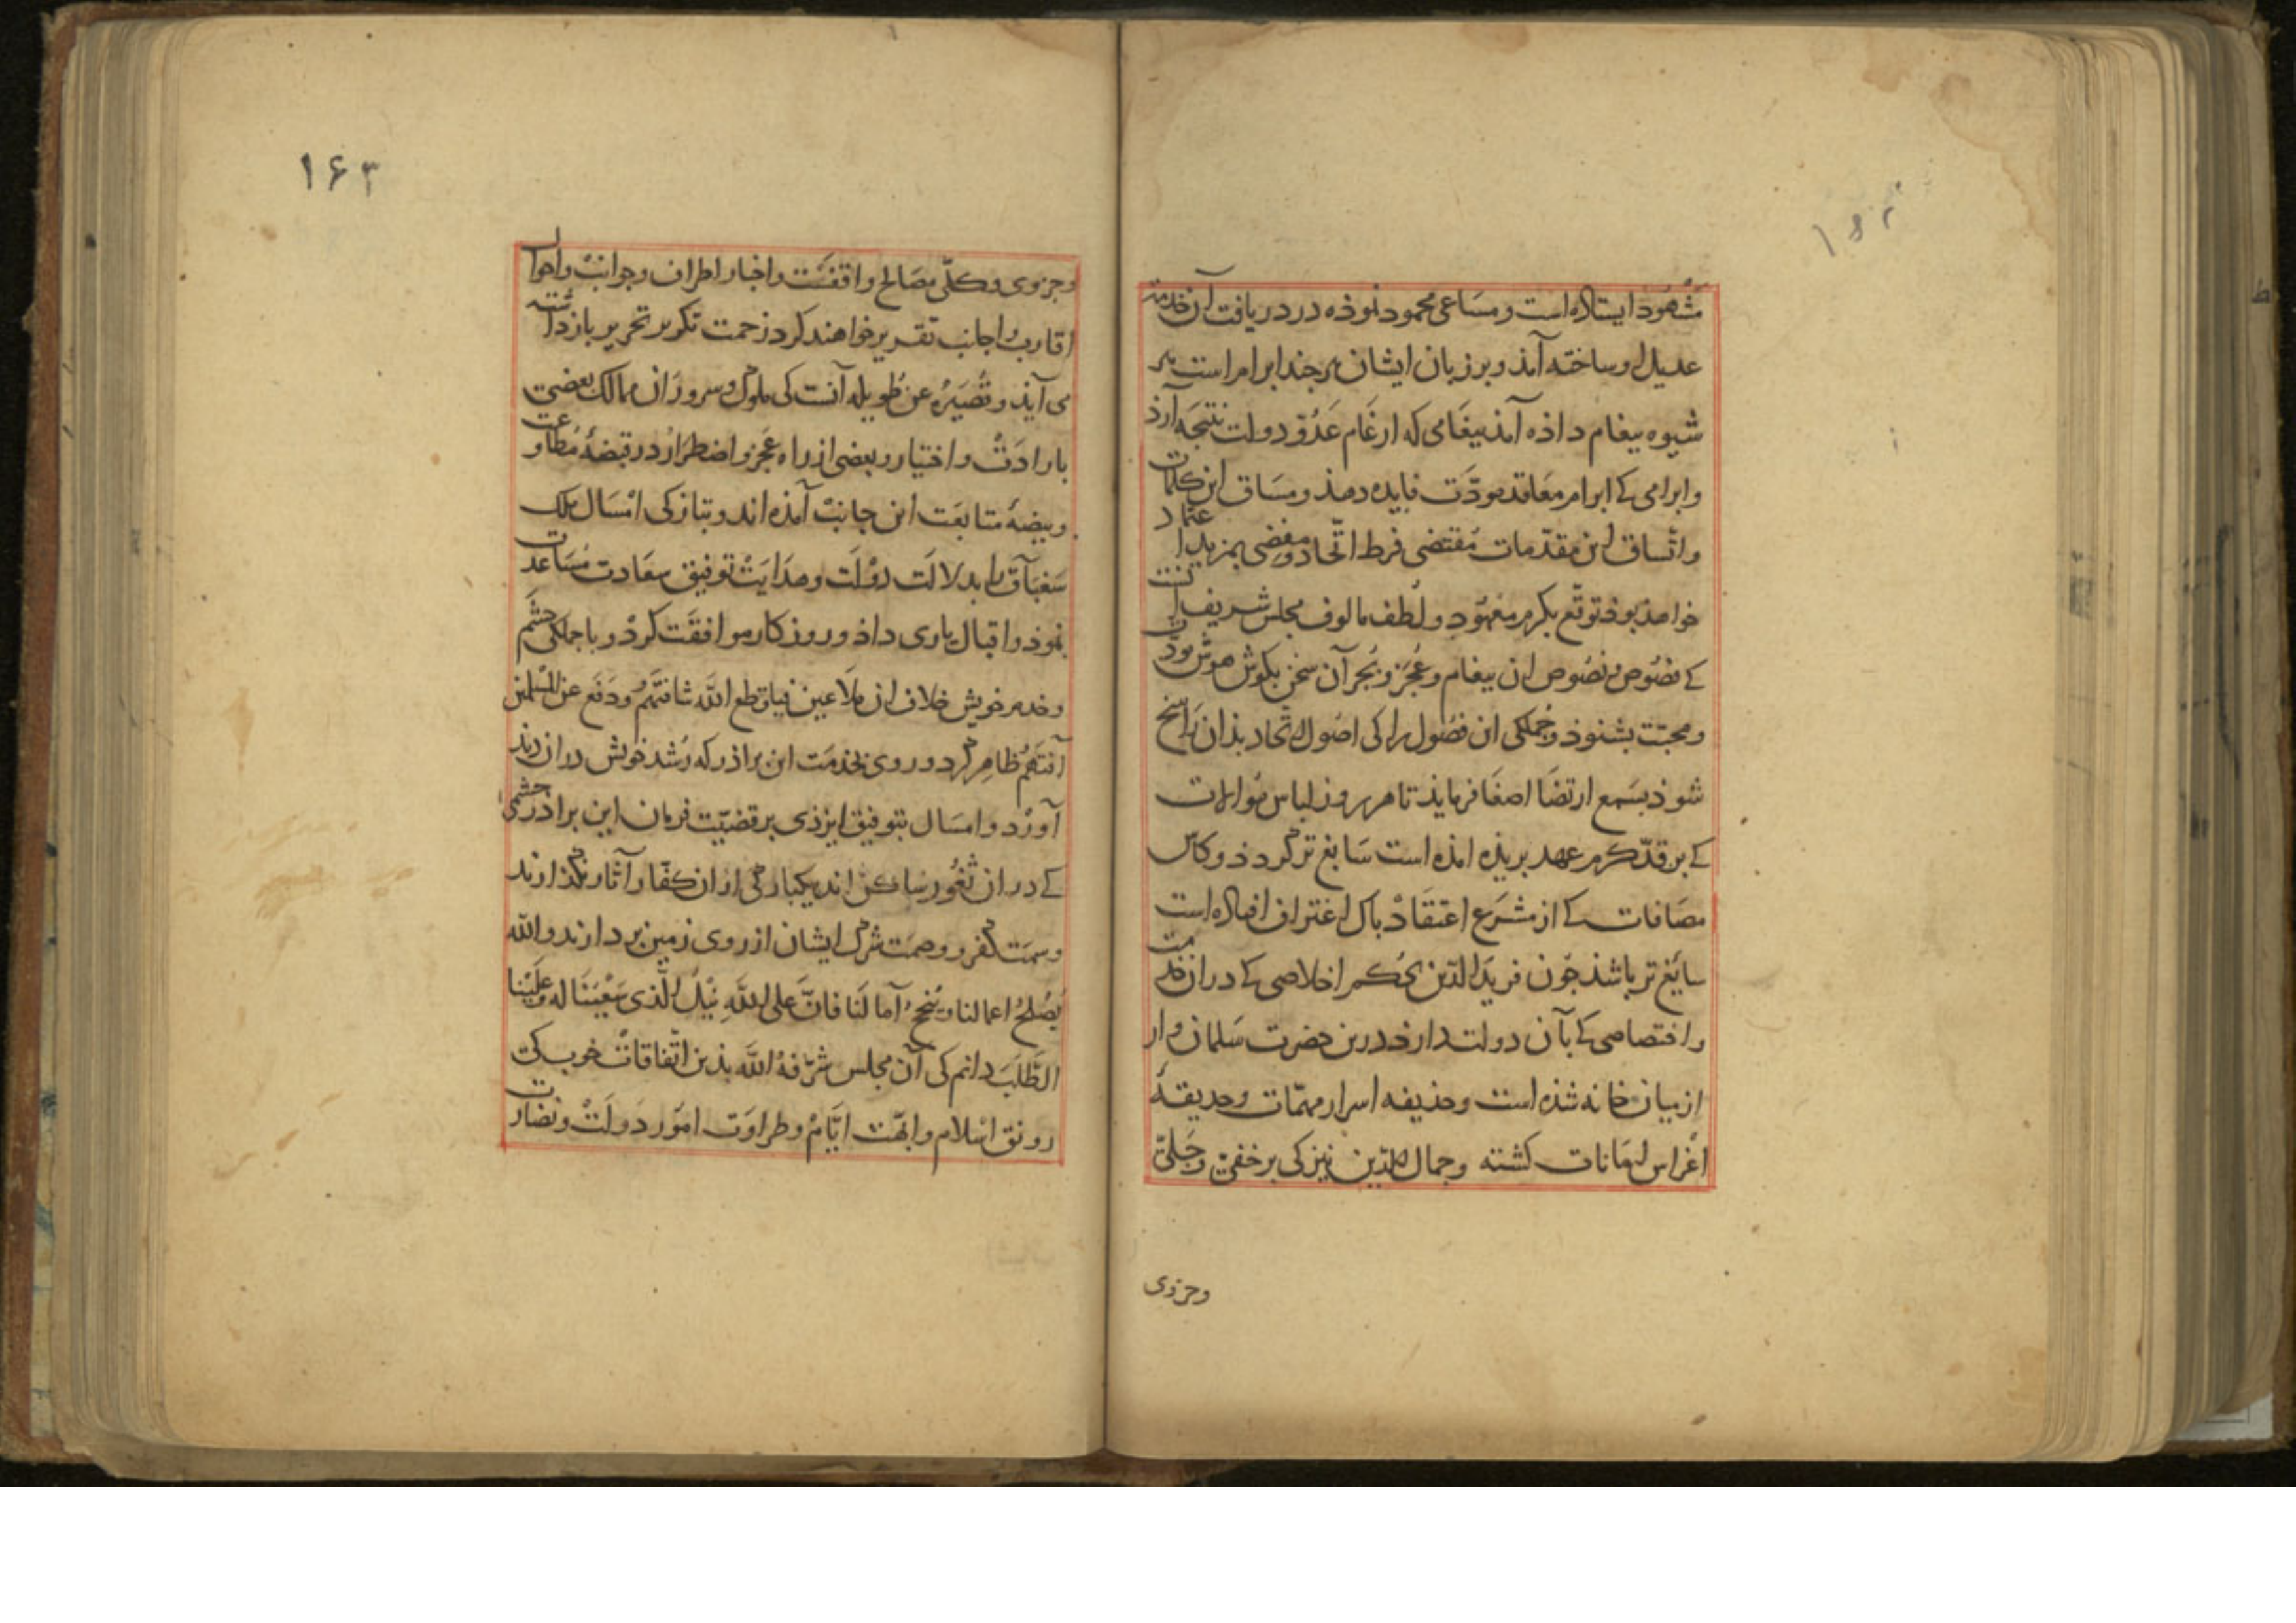 مشهود ایستاده است و مساعی محمود نوذه در دریافت آن خدمت
عدیل او ساخته آمذ و بر زبان ایشان هر جند ابرام است بر
شیوه بیغام داذه آمذ بیغامی که ارغام عدوّ دولت نتیجه آرذ
و ابرامی کے ابرام معاقد مودّت فایده دهذ و مساق این کلمات
و اتّساق این مقدّمات مقتضی فرط اتّحاد و مفضی بمزید اعتماد
خواهذ بوذ توقّع بکرم معهود و لطف مالوف مجلس شریف آنست
کے فصوص و نصوص ان بیغام و عجر و بجر آن سخن بکوش هوش مودّت
و محبّت بشنوذ و جملکی ان فصول را کی اصول اتّحاد بذان راسخ
شوذ بسمع ارتضا اصغا فرمایذ تا هر روز لباس موالات
کے بر قدّ کرم عهد بریذه امذه است سابغ تر کردذ و کاس
مصافات کے از مشرع اعتقاد باک اغتراف افتاده است
سایغ تر باشذ جون فرید الدّین بحکم اخلاصی کے در ان خدمت
و اختصاصی کے بآن دولت دارذ درین حضرت سلمان وار
از بیان خانه شذه است و حذیفه اسرار مهمّات و حدیقهٔ
اغراس لهانات کشته و جمال الدّین نیز کی بر خفیّ و جلیّ
وجزوی
۱۶۳
و جزوی و کلّی مصالح واقفست و اخبار اطراف و جوانب و احوال
اقارب و اجانب تقریر خواهند کرد زحمت تکریر تحریر بازداشته
می آیذ و قصیرة عن طویله آنست کی ملوک و سروران ممالک بعضی
بارادت و اختیار و بعضی از راه عجز و اضطرار در قبضهٔ مطاوعت
و بیضهٔ متابعت این جانب آمذه اند و بتازکی امسال ملک
سغناق را بدلالت دولت و هدایت توفیق سعادت مساعدت
نموذ و اقبال یاری داذ و روزکار موافقت کرد و با جملکی حشم
و خدم خویش خلاف ان ملاعین قطع اللّه شأفتهم و دفع عن المسلمین
آفتهم ظاهر کرد و روی بخدمت این براذر که رشد خویش در ان دید
آورد و امسال بتوفیق ایزذی بر قضیّت فرمان این براذر حشمی
کے در ان ثغور ساکن اند یکبارکی از ان کفّار آثار نکذارند
و سمت کفر و وصمت شرک ایشان از روی زمین بردارند و اللّه
یصلح اعمالنا و ینجح آمالنا فانّ علی اللّه نیل الّذی سعینا له و علینا
الطّلب دانم کی آن مجلس شرّفه اللّه بذین اتّفاقات خوب کی
رونق اسلام و ابهّت ایّام و طراوت امور دولت و نضارت